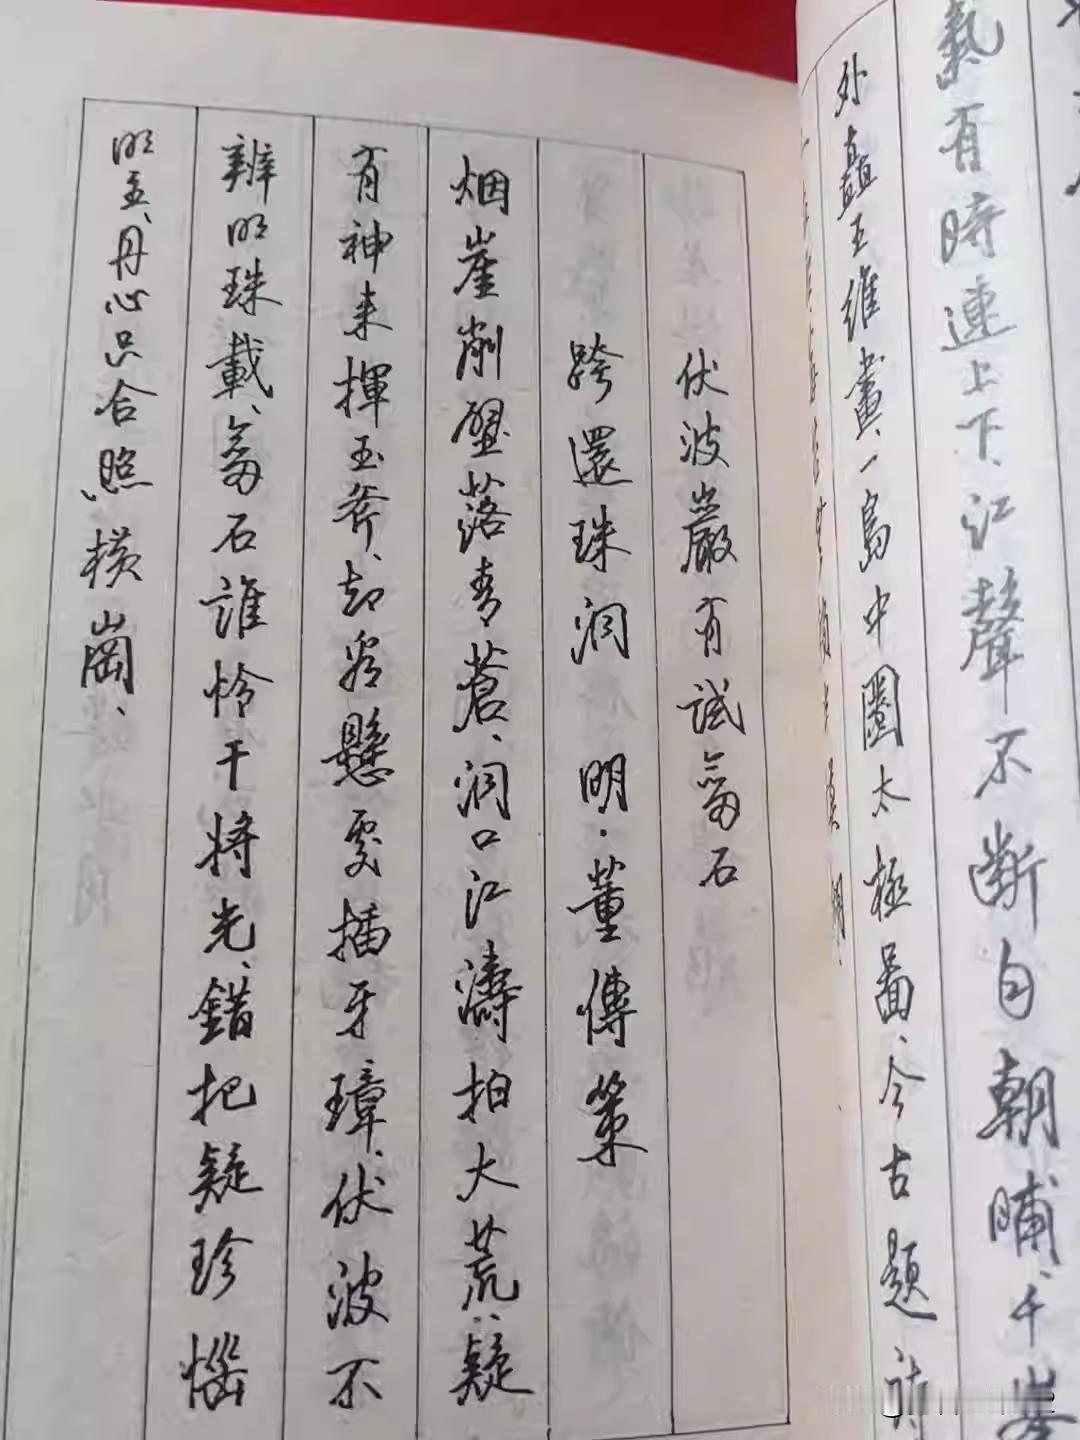 氣有時連上下、江聲不斷自朝晡、千峯
外矗王維畫、一島中圈太極圖、今古題詩
伏波巖有試劍石
跨還珠洞 明·董傳策
烟崖削壁落青蒼、洞口江濤拍大荒、疑
有神来揮玉斧、却看懸處插牙璋、伏波不
辨明珠載、劍石誰怜干將光、錯把疑珍惱
明主、丹心只合照横崗、